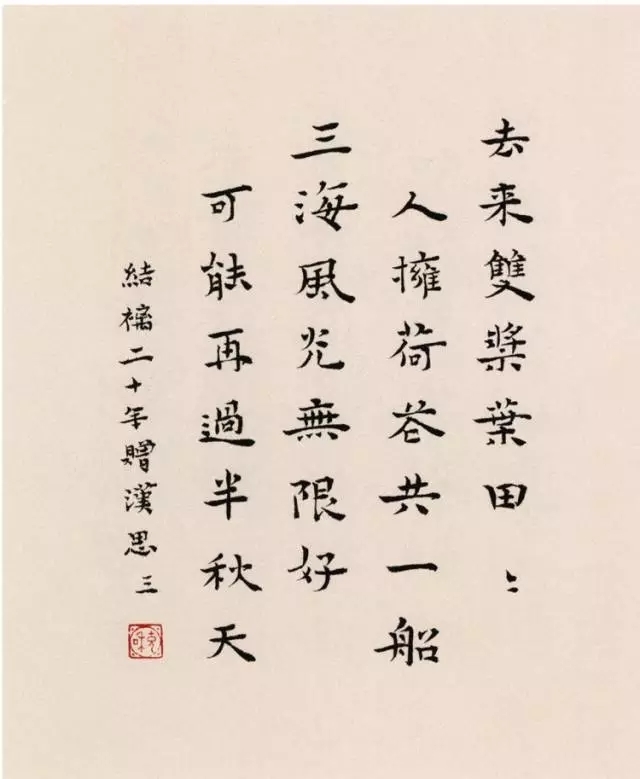 去来雙槳葉田〻
人擁荷花共一船
三海風光無限好
可能再過半秋天
結褵二十年贈漢思三
充和